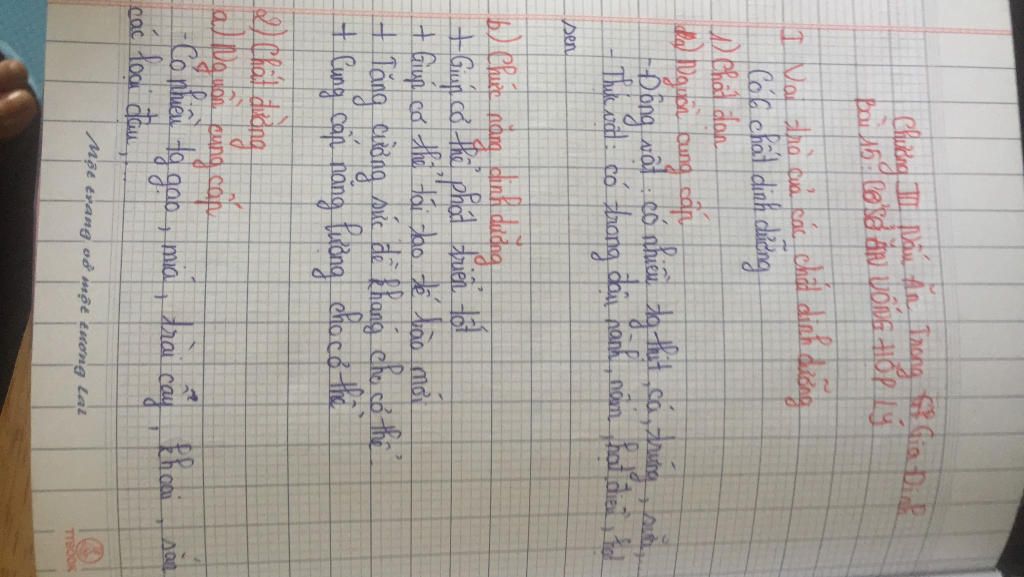 Chương III Nấu Ăn Trong Gia Đình
Bài 15: CƠ SỞ ĂN UỐNG HỢP LÝ
I Vai trò của các chất dinh dưỡng
Có 6 chất dinh dưỡng
1) Chất đạm
a) Nguồn cung cấp
- Động vật: có nhiều từ thịt, cá, trứng, sữa,
- Thực vật: có trong đậu nành, nấm, hạt điều, hạt
sen
b) Chức năng dinh dưỡng
+ Giúp cơ thể phát triển tốt
+ Giúp cơ thể tái tạo tế bào mới
+ Tăng cường sức đề kháng cho cơ thể.
+ Cung cấp năng lượng cho cơ thể
2) Chất đường
a) Nguồn cung cấp
- Có nhiều từ gạo, mía, trái cây, khoai, sắn
các loại đậu,...
Một trang vở một tương lai
TTBOOK